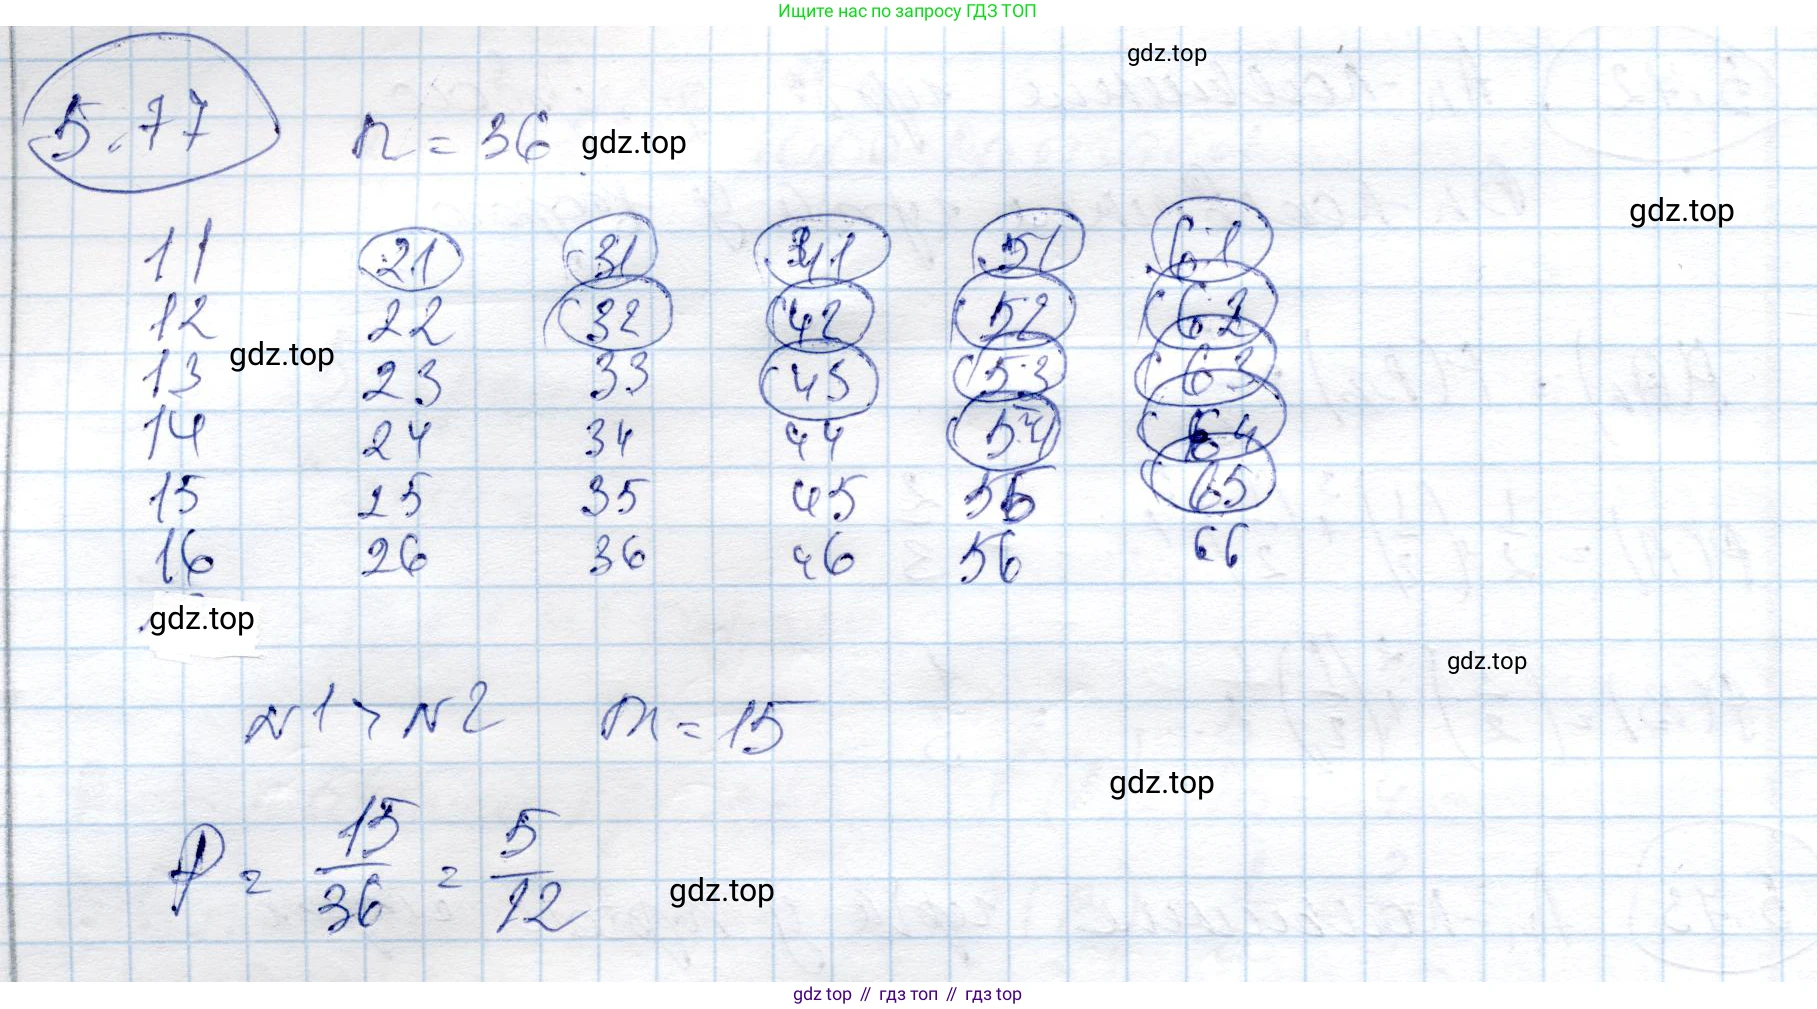 Ищите нас по запросу ГДЗ ТОП
gdz.top
5.77 n = 36 gdz.top
gdz.top
11 21 31 41 51 61
12 22 32 42 52 62
gdz.top
13 23 33 43 53 63
14 24 34 44 54 64
15 25 35 45 55 65
16 26 36 46 56 66
gdz.top
gdz.top
N1 > N2 m = 15
gdz.top
P = 15/36 = 5/12
gdz.top
gdz top // гдз топ // гдз top